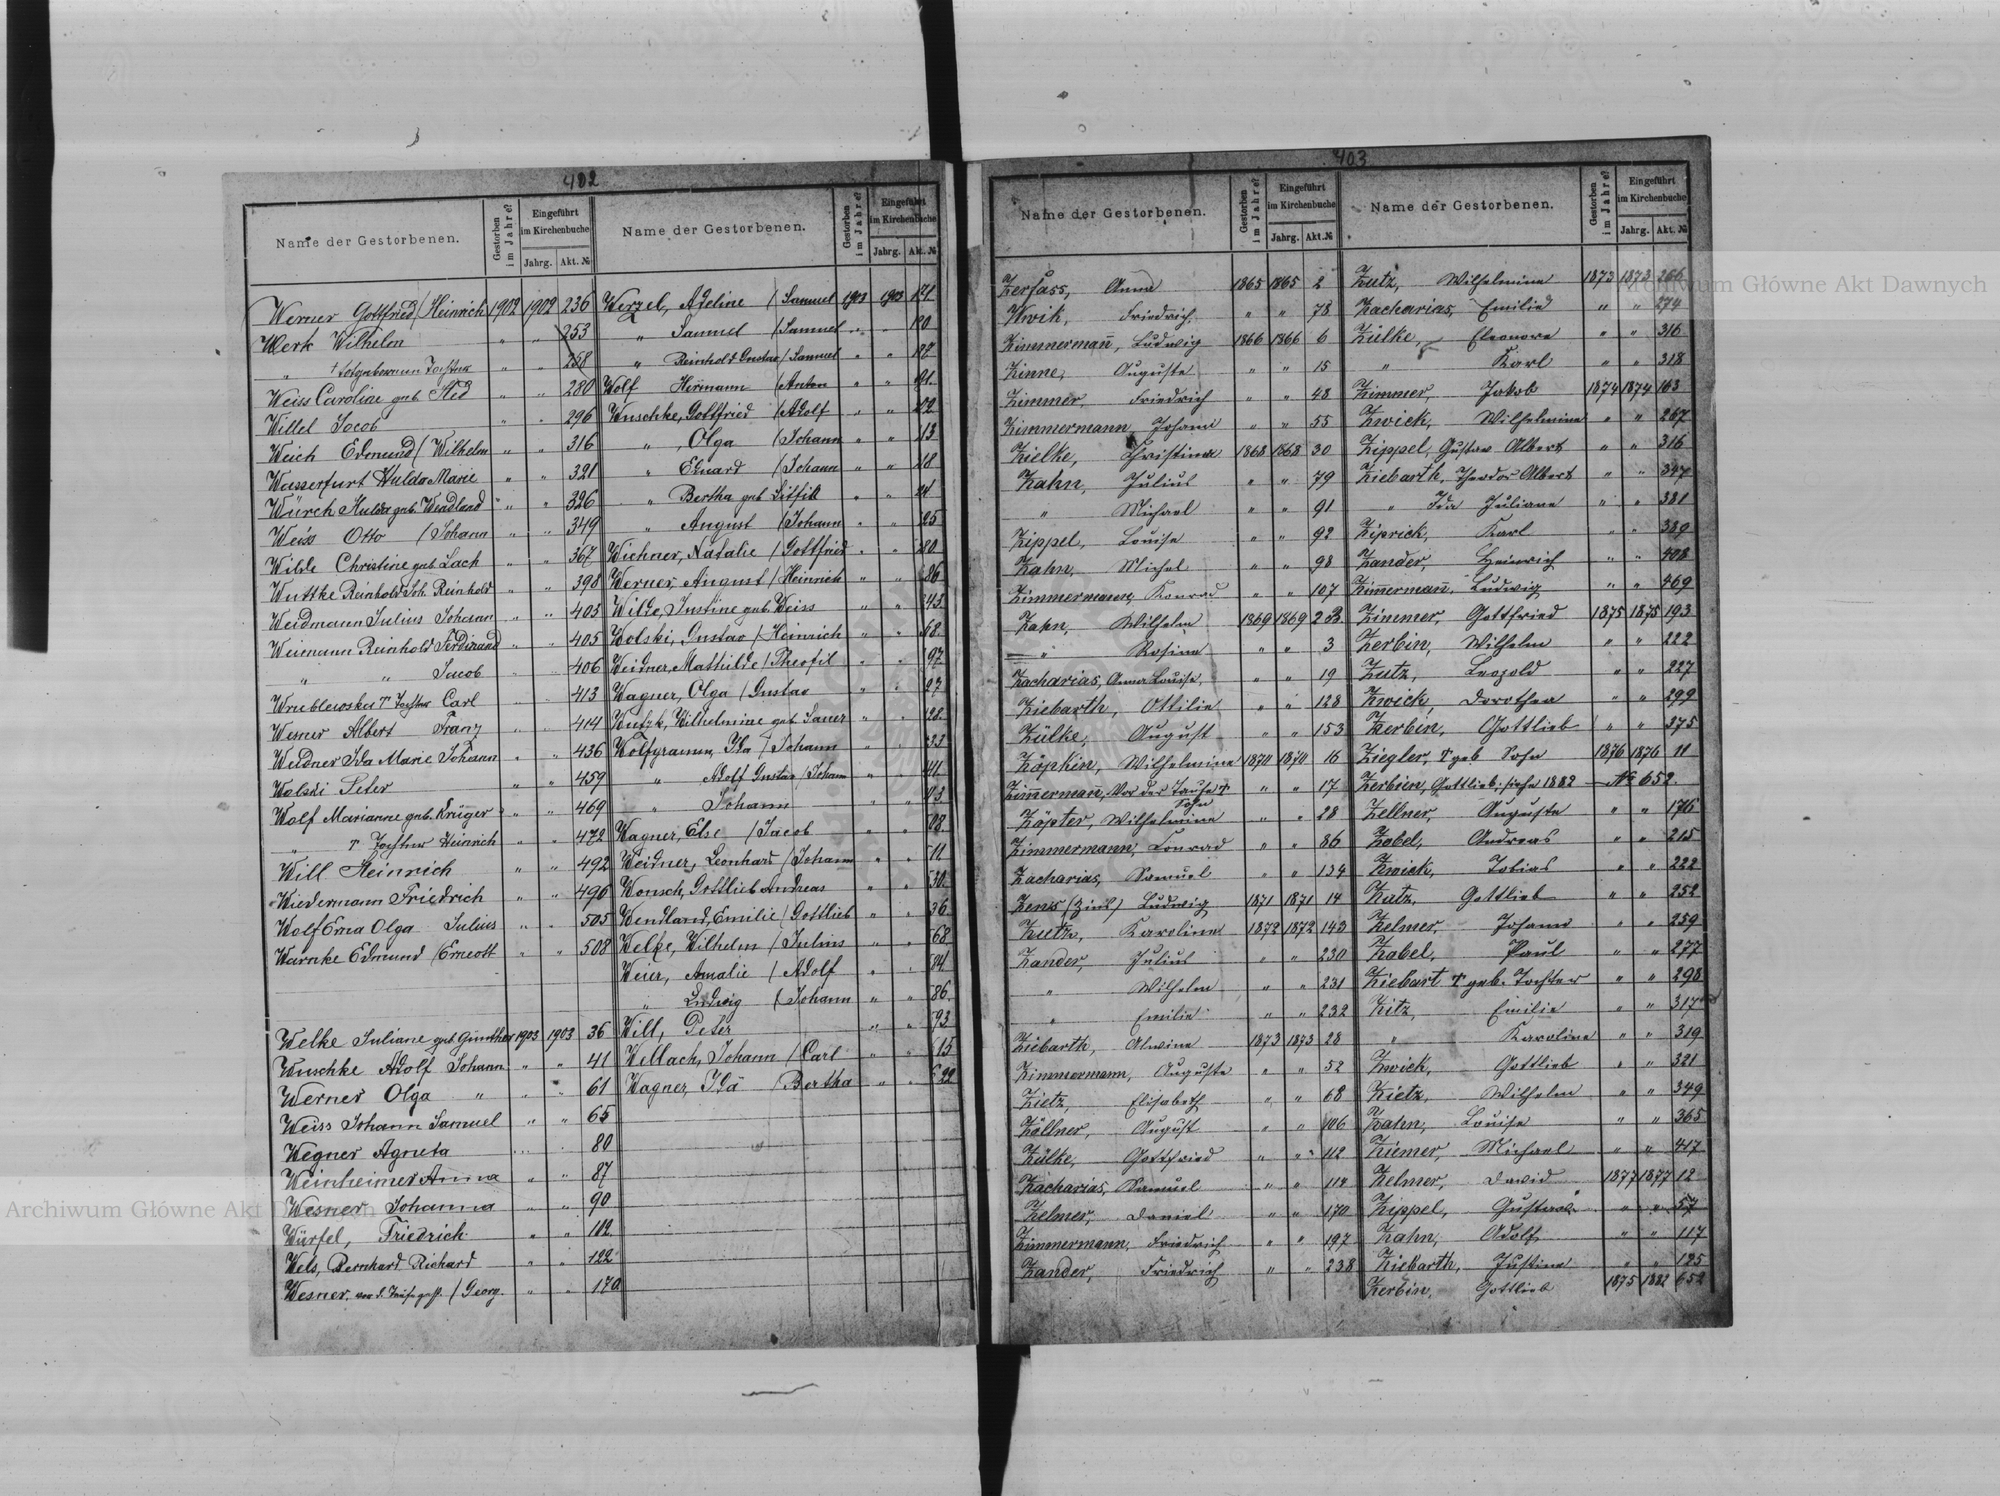 402
Name der Gestorbenen.
Gestorben im Jahre?
Eingeführt im Kirchenbuche
Jahrg. Akt. №
Name der Gestorbenen.
Gestorben im Jahre?
Eingeführt im Kirchenbuche
Jahrg. Akt. №
Werner Gottfried / Heinrich 1902 1902 236
Werk Wilhelm " " 253
" Totgeborenn Tochter " " 258
Weiss Caroline geb " " 280
Willel Jacob " " 296
Weich Edmund / Wilhelm " " 316
Wasserfurt Hulda Marie " " 321
Würch Hulda geb. Wendland " " 326
Weiss Otto / Johann " " 349
Wilde Christine geb Lach " " 367
Wuttke Reinhold Joh. Reinhold " " 398
Weidmann Julius Johann " " 403
Weimann Reinhold Ferdinand " " 405
" " Jacob " " 406
Wrublewska T Tochter Carl " " 413
Werner Albert Franz " " 414
Weidner Ida Marie Johann " " 436
Wolski Peter " " 459
Wolf Marianne geb. Krüger " " 469
" T Tochter Heinrich " " 472
Will Heinrich " " 492
Wiedermann Friedrich " " 496
Wolf Erna Olga Julius " " 505
Warnke Edmund / Ernestt " " 508
Welke Juliane geb Günther 1903 1903 36
Wuschke Adolf Johann " " 41
Werner Olga " " " 61
Weiss Johann Samuel " " 65
Wegner Agneta " " 80
Weinheimer Anna " " 87
Wesner Johanna " " 90
Würfel, Friedrich " " 112
Wels, Bernhard Richard " " 122
Wesner, vor d. Taufe gest. / Georg. " " 170
Werzel, Adeline / Samuel 1903 1903
" Samuel / Samuel " "
" Reinhold Gustav / Samuel " "
Wolf Hermann / Anton " "
Wuschke, Gottfried / Adolf " "
" Olga / Johann " "
" Eduard / Johann " "
" Bertha geb " "
" August / Johann " "
Wichner, Natalie / Gottfried " "
Werner, August / Heinrich " "
Wilde, Justine geb. Weiss " "
Wolski, Gustav / Heinrich " "
Weidner, Mathilde / Theofil " "
Wagner, Olga / Gustav " "
Wilhelmine geb Sauer " "
Wolfgramm, Ida / Johann " "
" Adolf Gustav / Johann " "
" Johann " "
Wagner, Else / Jacob " "
Weidner, Leonhard / Johann " "
Wonsch, Gottlieb Andreas " "
Wendland, Emilie / Gottlieb " "
Welke, Wilhelm / Julius " "
Weier, Amalie / Adolf " "
" Ludwig / Johann " "
Will, Peter " "
Wellach, Johann / Carl " "
Wagner, Ida / Bertha " "
403
Name der Gestorbenen.
Gestorben im Jahre?
Eingeführt im Kirchenbuche
Jahrg. Akt. №
Name der Gestorbenen.
Gestorben im Jahre?
Eingeführt im Kirchenbuche
Jahrg. Akt. №
Zerfass, Anna 1865 1865 2
Zwik, Friedrich " " 78
Zimmermañ, Ludwig 1866 1866 6
Zinne, Auguste " " 15
Zimmer, Friedrich " " 48
Zimmermann Johann " " 55
Zielke, Christine 1868 1868 30
Zahn, Julius " " 79
" Michael " " 91
Zippel, Louise " " 92
Zahn, Michel " " 98
Zimmermann, Konrad " " 107
Zahn, Wilhelm 1869 1869
" Rosine " " 3
Zacharias, Anna Louise " " 19
Ziebarth, Ottilie " " 128
Zülke, August " " 153
Zöpkin, Wilhelmine 1870 1870 16
Zimmermañ, Vor der Taufe † Sohn " " 17
Zöpter, Wilhelmine " " 28
Zimmermann, Conrad " " 86
Zacharias, Samuel " " 134
Zens (Zins) Ludwig 1871 1871 14
Zutz, Karoline 1872 1872 143
Zander, Julius " " 230
" Wilhelm " " 231
" Emilie " " 232
Ziebarth, Alwine 1873 1873 28
Zimmermann, Auguste " " 52
Zietz, Elisabeth " " 68
Zöllner, August " " 106
Zülke, Gottfried " " 112
Zacharias, Samuel " " 112
Zelmer, Daniel " " 170
Zimmermann, Friedrich " " 197
Zander, Friedrich " " 238
Zutz, Wilhelmine 1873 1873 266
Zacharias, Emilie " " 274
Zülke, Eleonore " " 316
" Karl " " 318
Zimmer, Jakob 1874 1874 163
Zwick, Wilhelmine " " 267
Zippel, Gustav Albert " " 316
Ziebarth, Theodor Albert " " 347
" Ida Juliane " " 381
Ziprick, Karl " " 389
Zander, Heinrich " " 408
Zimmermañ, Ludwig " " 469
Zimmer, Gottfried 1875 1875 193
Zerbin, Wilhelm " " 222
Zutz, Leopold " " 227
Zwick, Dorothea " " 299
Zerbin, Gottlieb " " 375
Ziegler, T geb Sohn 1876 1876 11
Zerbin, Gottlieb, siehe 1882 № 652.
Zellner, Auguste " " 176
Zabel, Andreas " " 215
Zwick, Tobias " " 222
Zutz, Gottlieb " " 252
Zelmer, Johann " " 259
Zabel, Paul " " 277
Ziebart T geb. Tochter " " 298
Zitz, Emilie " " 317
" Karoline " " 319
Zwick, Gottlieb " " 321
Zietz, Wilhelm " " 349
Zahn, Louise " " 365
Ziemer, Michael " " 417
Zelmer, David 1877 1877 12
Zippel, Gustav " " 57
Zahn, Adolf " " 117
Ziebarth, Justine " " 125
Zerbin, Gottlieb 1875 1882 652
Archiwum Główne Akt Dawnych
Archiwum Główne Akt Dawnych